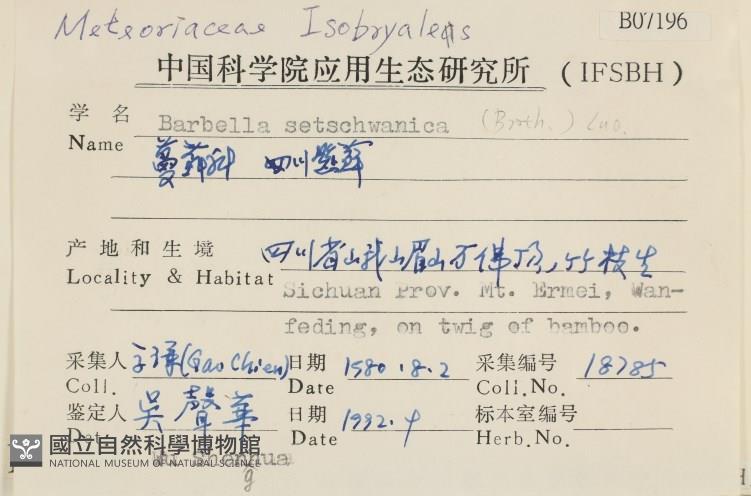 Meteoriaceae Isobryales
B07196
中国科学院应用生态研究所 (IFSBH)
学名 Barbella setschwanica (Broth.)
Name 蔓藓科 四川悬藓
产地和生境 四川省峨眉山万佛顶,竹枝生
Locality & Habitat Sichuan Prov. Mt. Ermei, Wan-
feding, on twig of bamboo.
采集人 (Gao Chien) 日期 1980.8.2 采集编号 18785
Coll. Date Coll.No.
鉴定人 吴聲華 日期 1992.4 标本室编号
Det. Date Herb.No.
國立自然科學博物館
NATIONAL MUSEUM OF NATURAL SCIENCE